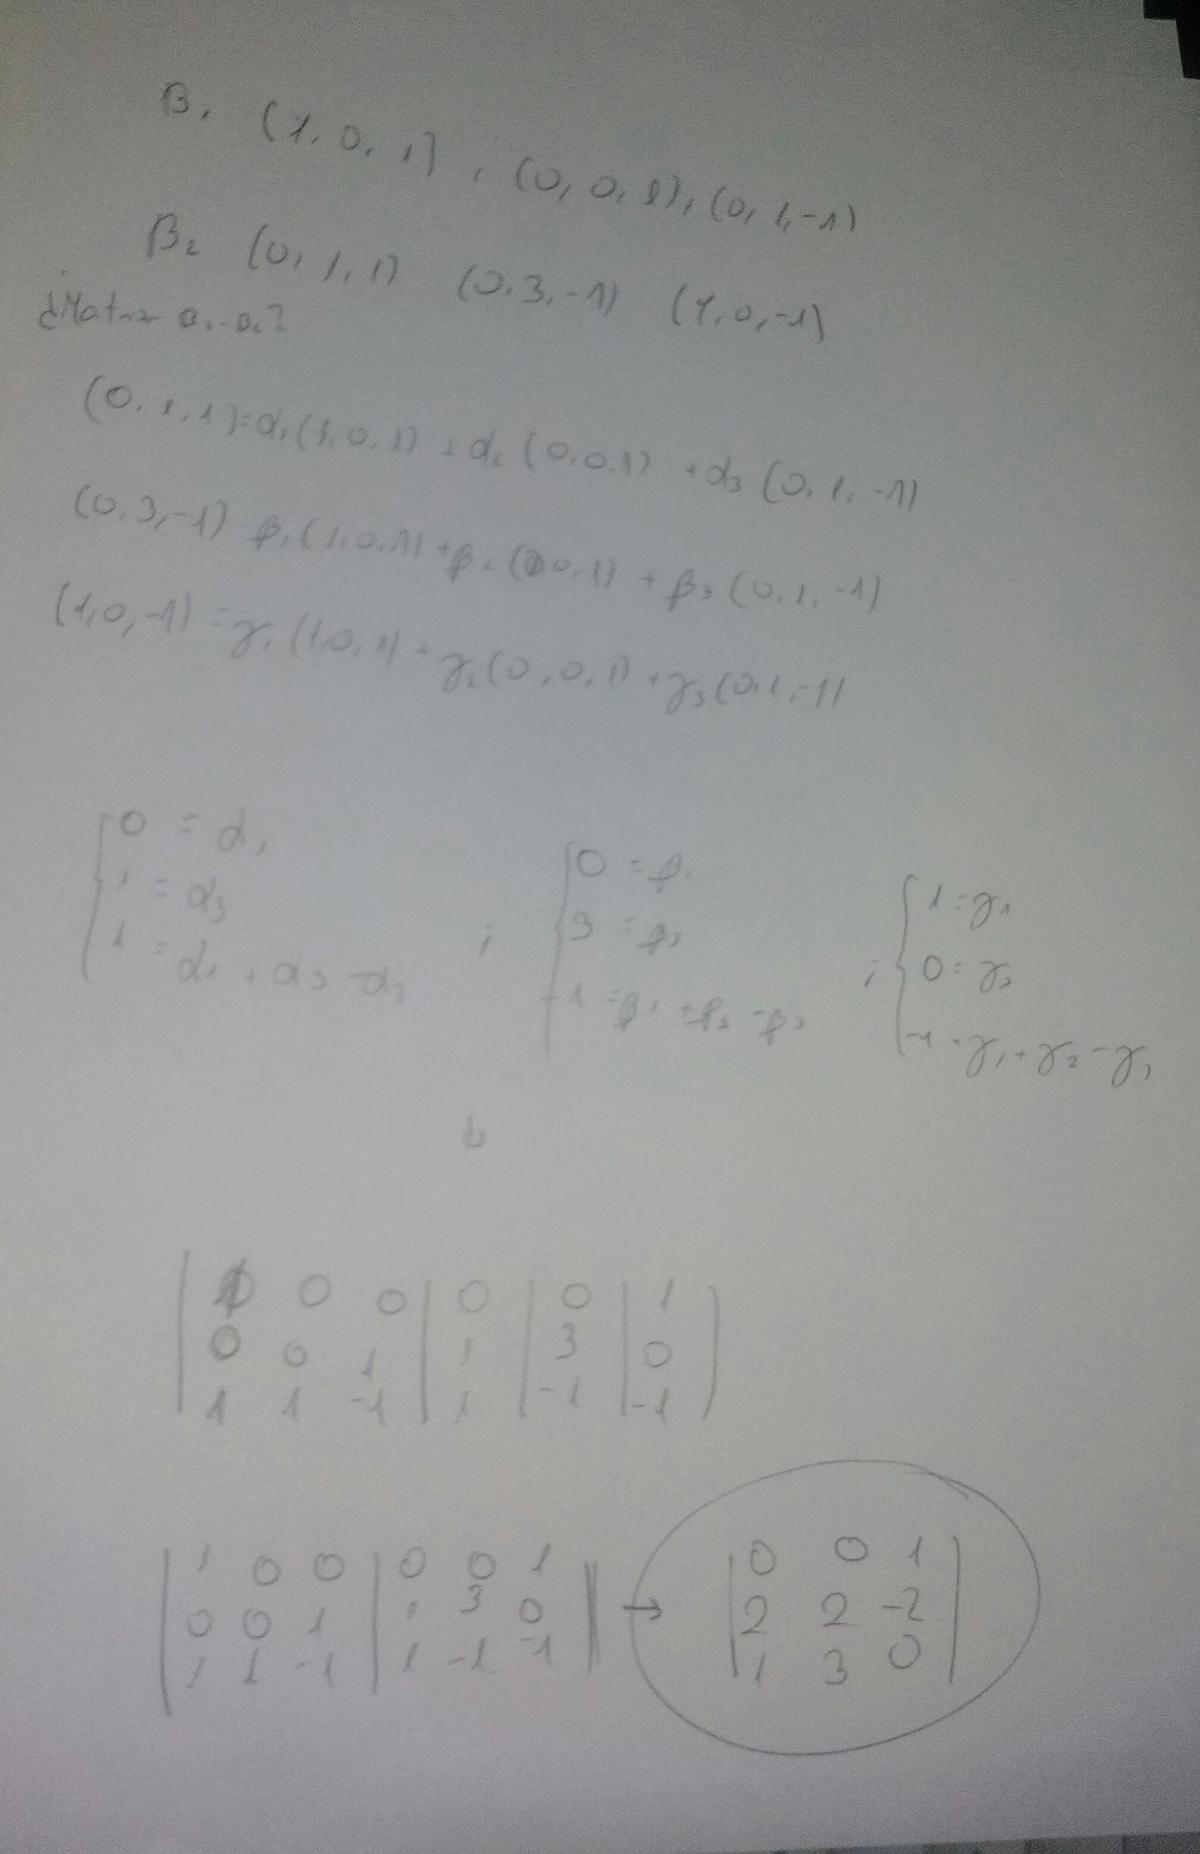 B₁ (1, 0, 1), (0, 0, 1), (0, 1, -1)
B₂ (0, 1, 1) (0, 3, -1) (1, 0, -1)
¿Matriz B₁-B₂?
(0, 1, 1) = α₁(1, 0, 1) + α₂(0, 0, 1) + α₃(0, 1, -1)
(0, 3, -1) = β₁(1, 0, 1) + β₂(0, 0, 1) + β₃(0, 1, -1)
(1, 0, -1) = γ₁(1, 0, 1) + γ₂(0, 0, 1) + γ₃(0, 1, -1)
{ 0 = α₁ ; { 0 = β₁ ; { 1 = γ₁
1 = α₃ 3 = β₃ 0 = γ₃
1 = α₁ + α₂ - α₃ -1 = β₁ + β₂ - β₃ -1 = γ₁ + γ₂ - γ₃
| 1 0 0 | 0 | 0 | 1 |
| 0 0 1 | 1 | 3 | 0 |
| 1 1 -1 | 1 | -1 | -1 |
| 1 0 0 | 0 0 1 | → | 0 0 1 |
| 0 0 1 | 1 3 0 | | 2 2 -2 |
| 1 1 -1 | 1 -1 -1 | | 1 3 0 |